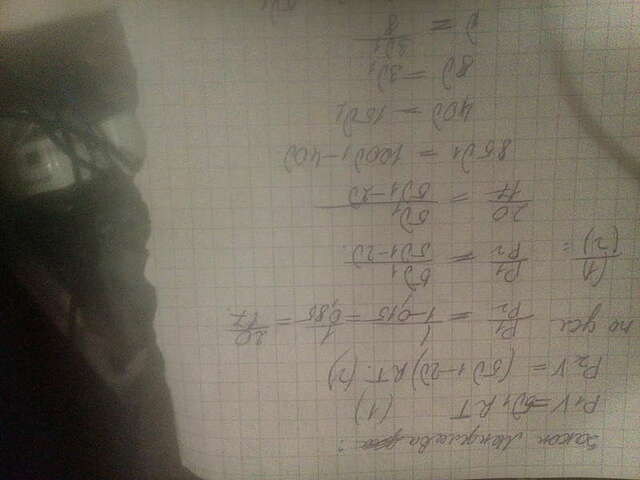 закон Менделеева:
P₁V = 5ϑ₁RT (1)
P₂V = (5ϑ₁ - 2ϑ)RT (2)
по усл P₁/P₂ = 1/(1-0,15) = 1/0,85 = 20/17
(1)/(2) = P₁/P₂ = 5ϑ₁/(5ϑ₁-2ϑ)
20/17 = 5ϑ₁/(5ϑ₁-2ϑ)
85ϑ₁ = 100ϑ₁ - 40ϑ
40ϑ = 15ϑ₁
8ϑ = 3ϑ₁
ϑ = 3ϑ₁/8